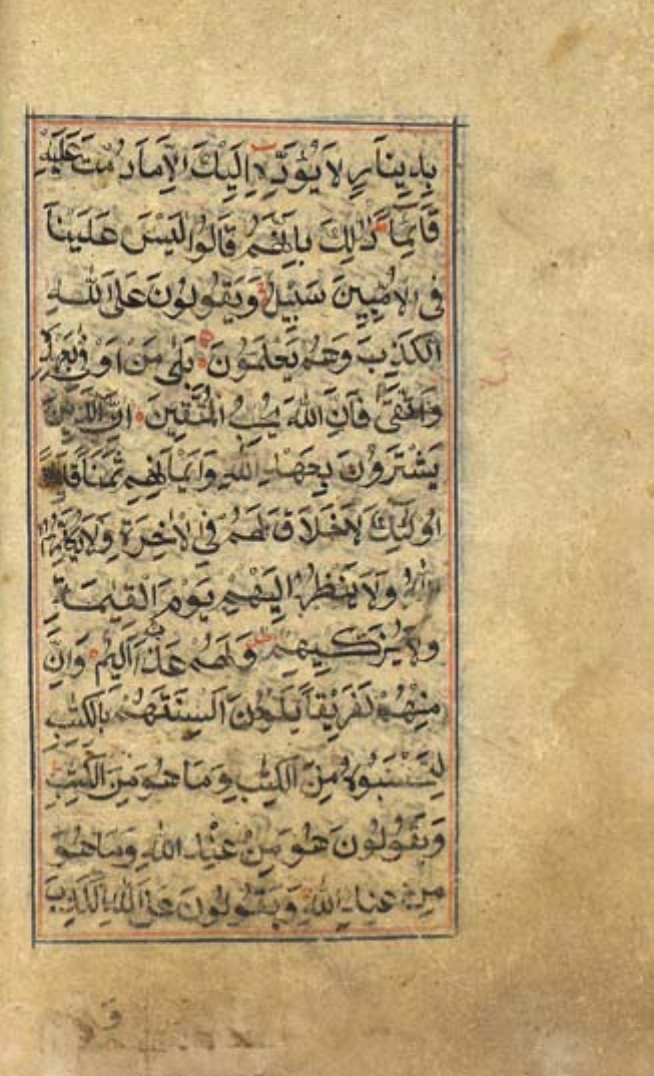 بِدِينَارٍ لَا يُؤَدِّهِ إِلَيْكَ إِلَّا مَا دُمْتَ عَلَيْهِ
قَائِمًا ذٰلِكَ بِأَنَّهُمْ قَالُوا لَيْسَ عَلَيْنَا
فِي الْأُمِّيِّينَ سَبِيلٌ وَيَقُولُونَ عَلَى اللّٰهِ
الْكَذِبَ وَهُمْ يَعْلَمُونَ بَلٰى مَنْ أَوْفٰى بِعَهْدِهِ
وَاتَّقٰى فَإِنَّ اللّٰهَ يُحِبُّ الْمُتَّقِينَ إِنَّ الَّذِينَ
يَشْتَرُونَ بِعَهْدِ اللّٰهِ وَأَيْمَانِهِمْ ثَمَنًا قَلِيلًا
أُولٰئِكَ لَا خَلَاقَ لَهُمْ فِي الْآخِرَةِ وَلَا يُكَلِّمُهُمُ
اللّٰهُ وَلَا يَنْظُرُ إِلَيْهِمْ يَوْمَ الْقِيٰمَةِ
وَلَا يُزَكِّيهِمْ وَلَهُمْ عَذَابٌ أَلِيمٌ وَإِنَّ
مِنْهُمْ لَفَرِيقًا يَلْوُونَ أَلْسِنَتَهُمْ بِالْكِتٰبِ
لِتَحْسَبُوهُ مِنَ الْكِتٰبِ وَمَا هُوَ مِنَ الْكِتٰبِ
وَيَقُولُونَ هُوَ مِنْ عِنْدِ اللّٰهِ وَمَا هُوَ
مِنْ عِنْدِ اللّٰهِ وَيَقُولُونَ عَلَى اللّٰهِ الْكَذِبَ